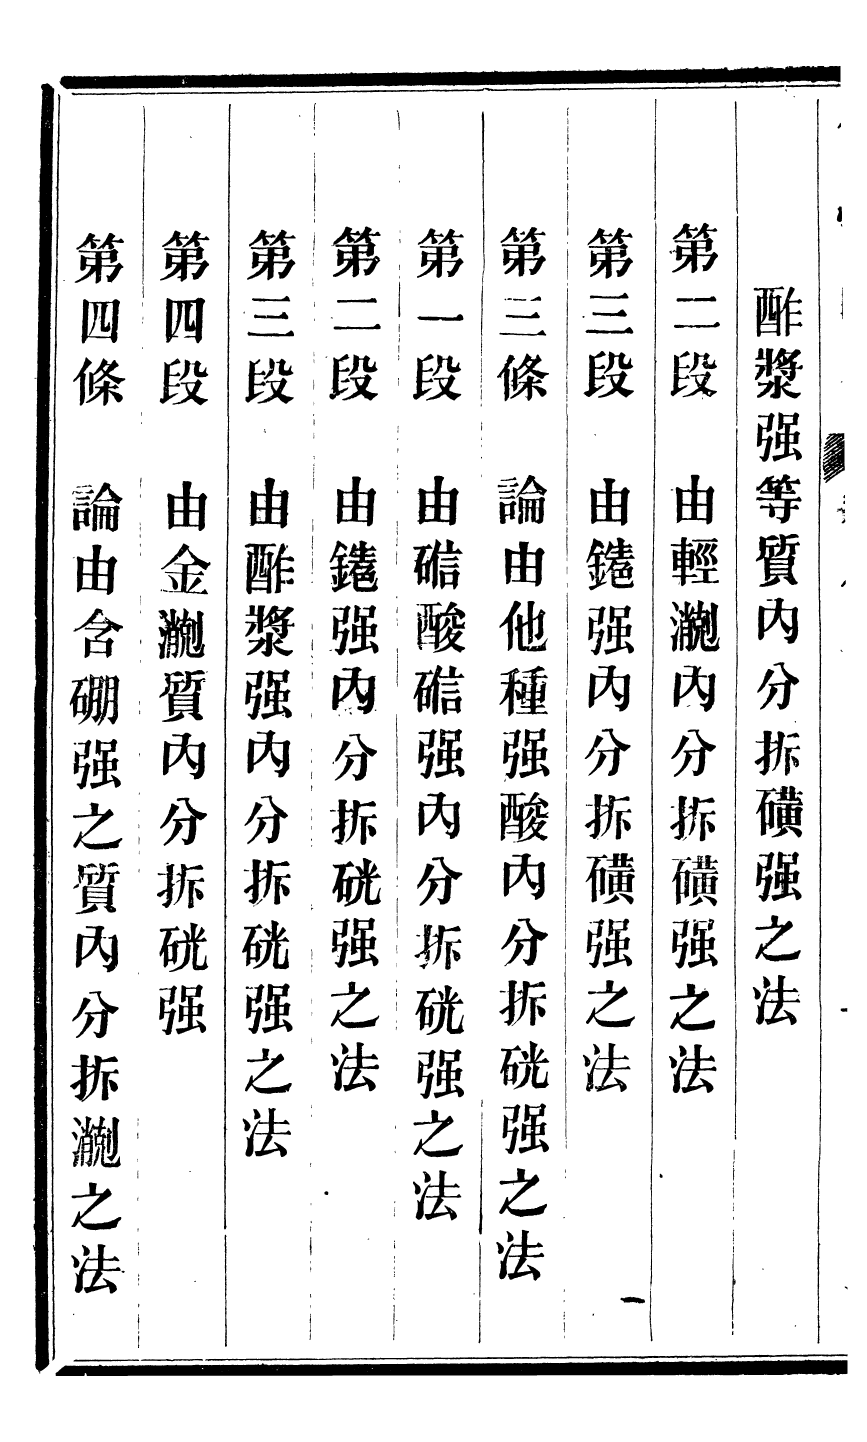 酢漿强等質內分拆磺强之法
第二段 由輕內分拆磺强之法
第三段 由强內分拆磺强之法
第三條 論由他種强酸內分拆硄强之法
第一段 由酸强內分拆硄强之法
第二段 由强內分拆硄强之法
第三段 由酢漿强內分拆硄强之法
第四段 由金質內分拆硄强
第四條 論由含硼强之質內分拆之法